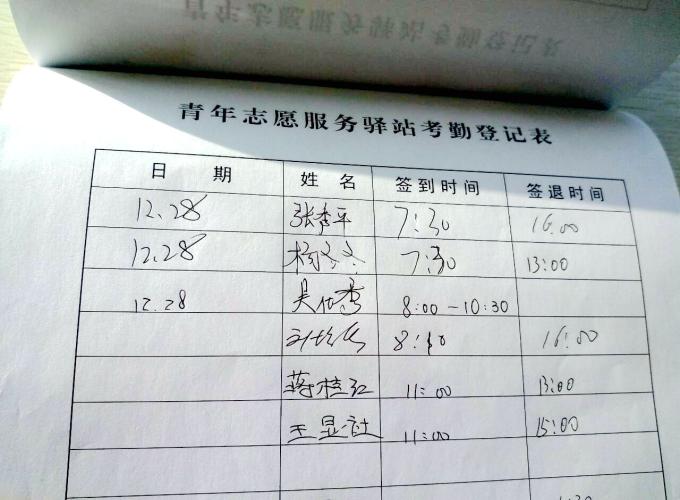 青年志愿服务驿站考勤登记表
日 期 姓 名 签到时间 签退时间
12.28 张秀平 7:30 16.00
12.28 杨冬冬 7:30 13:00
12.28 吴仕秀 8:00-10:30
8:10 16:00
蒋桂红 11:00 13:00
王显 11:00 15:00